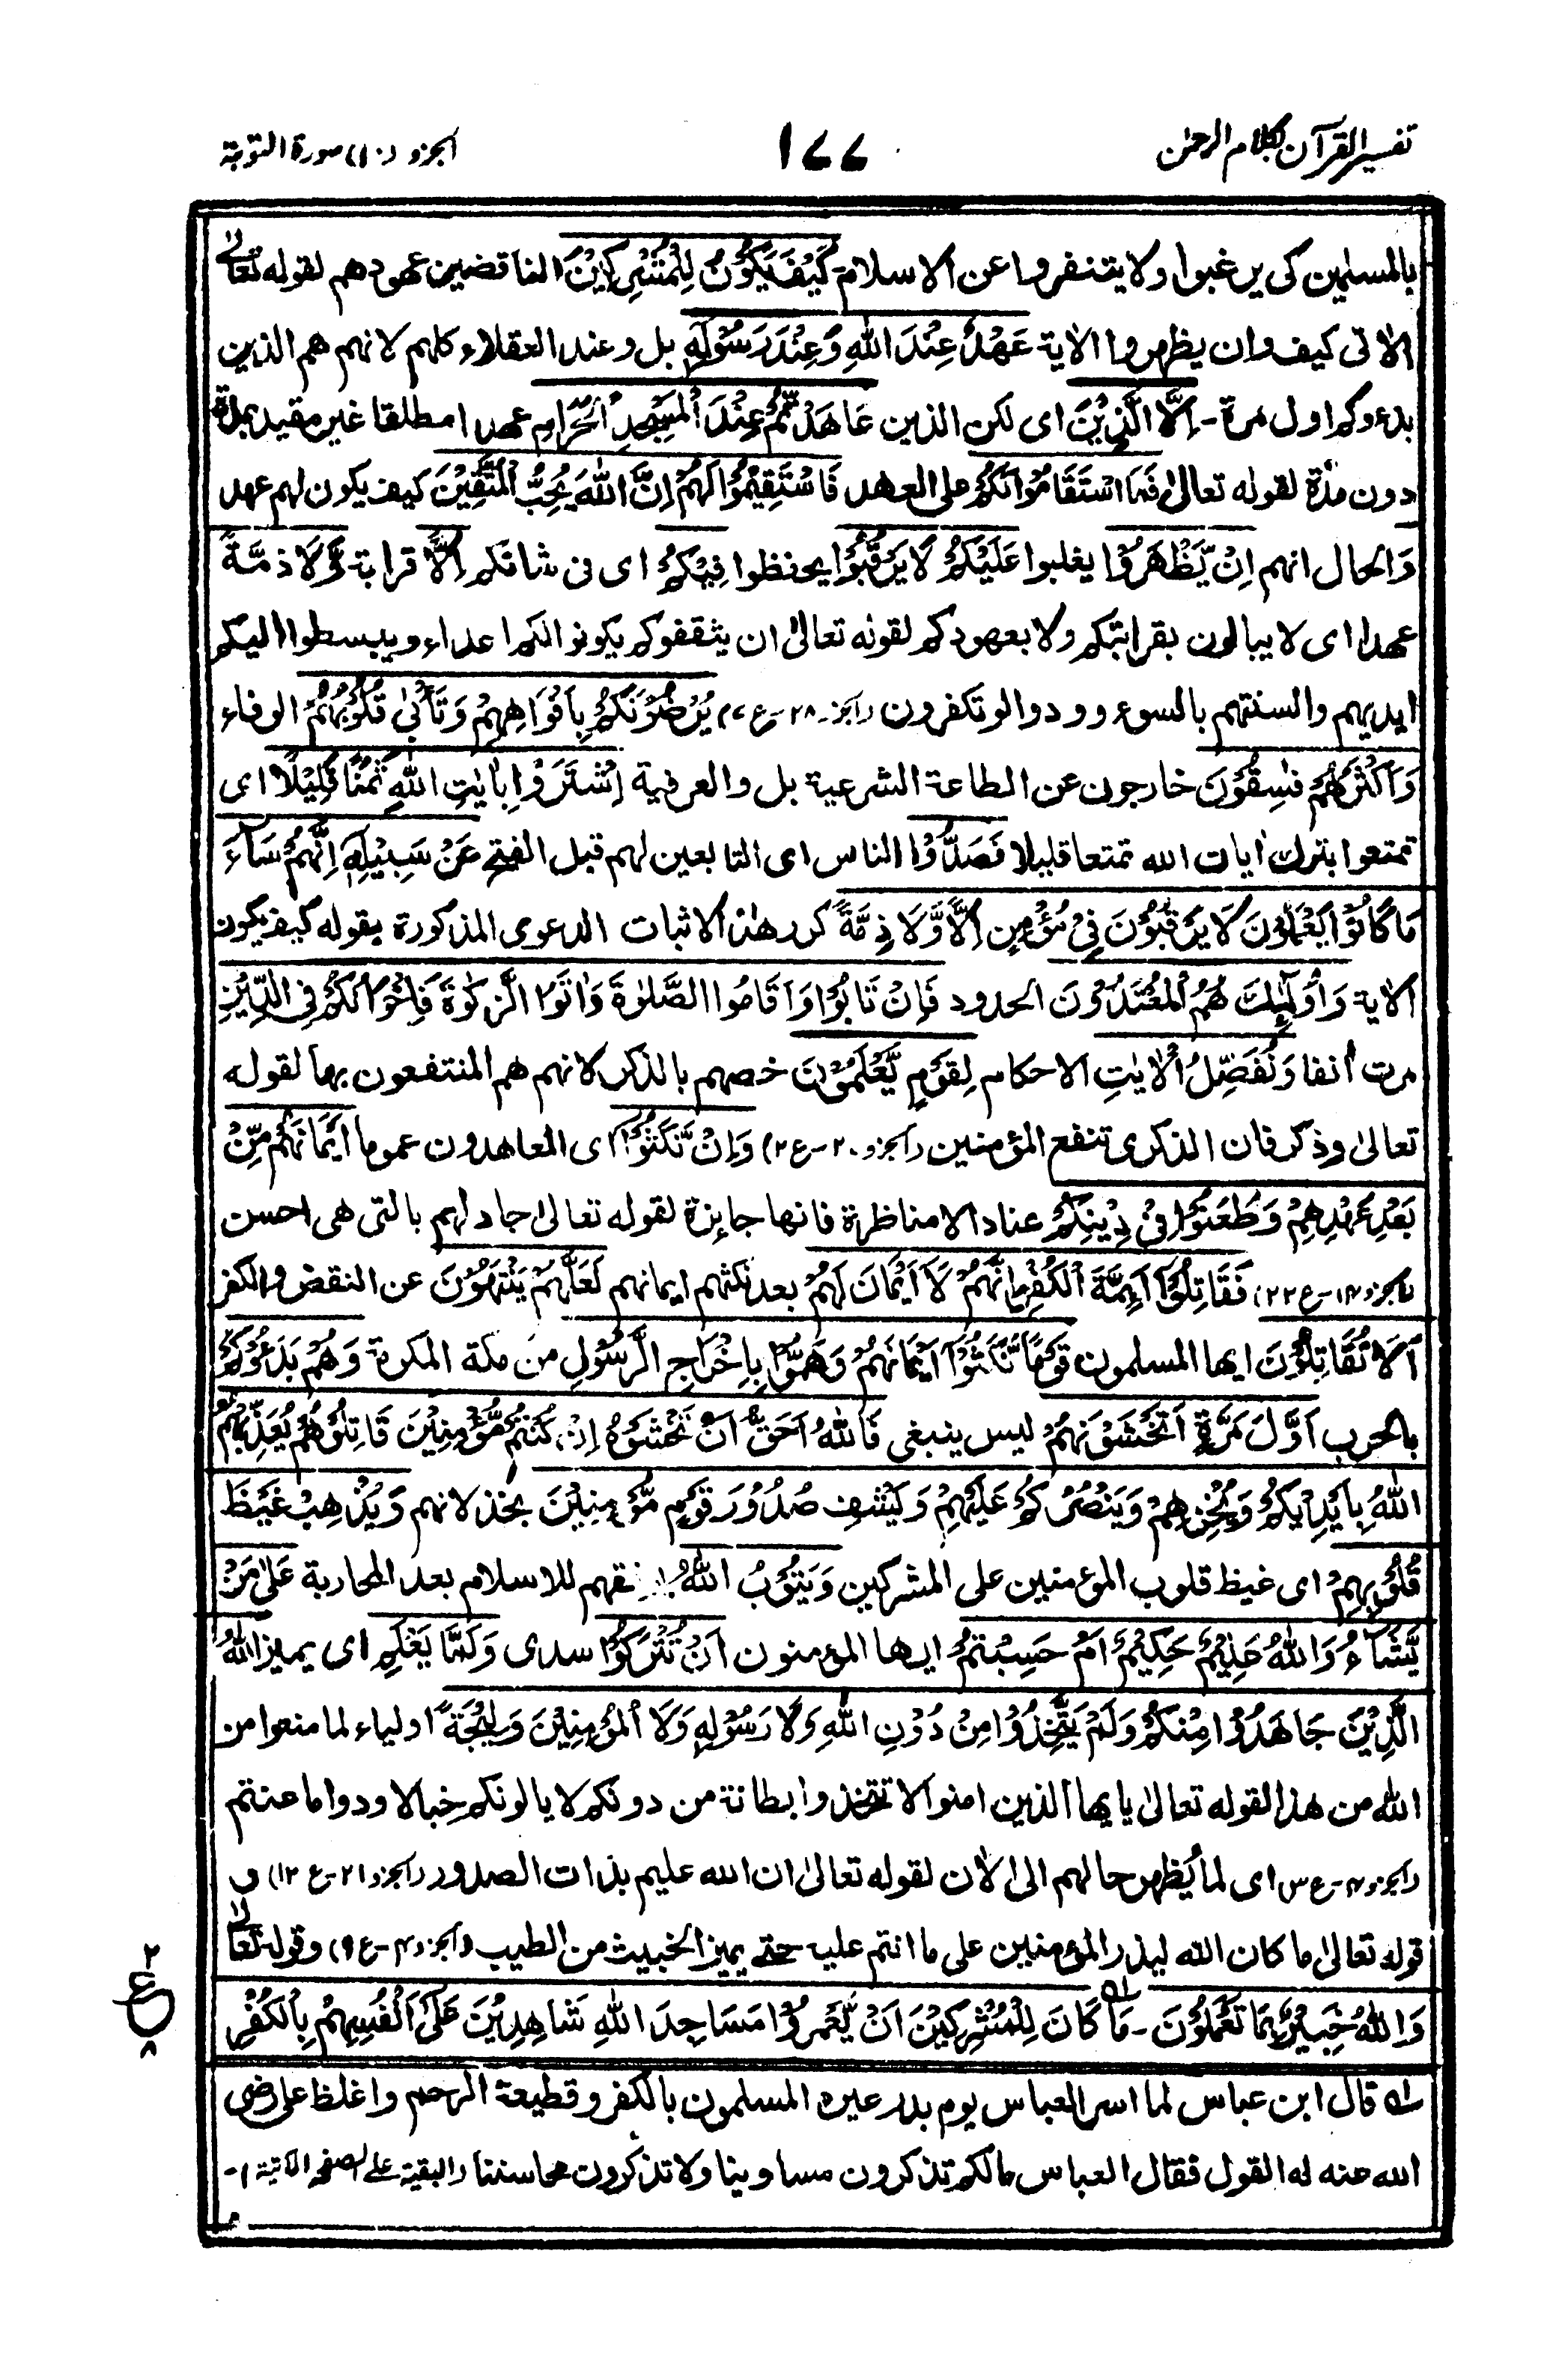 تفسير القرآن بكلام الرحمٰن
١٧٧
الجزو (١٠) سورة التوبة
بالمسلمين كى يرغبوا ولا يتنفروا عن الاسلام۔ كَيْفَ يَكُوْنُ لِلْمُشْرِكِيْنَ الناقضين عهودهم لقوله تعالىٰ
الاٰتى كيف وان يظهروا الاٰية عَهْدٌ عِنْدَ اللهِ وَعِنْدَ رَسُوْلِهٖ بل وعند العقلاء كلهم لانهم هم الذين
بدءوكم اول مرة۔ اِلَّا الَّذِيْنَ اى لكن الذين عَاهَدْتُّمْ عِنْدَ الْمَسْجِدِ الْحَرَامِ عهدا مطلقا غير مقيد بمدة
دون مدة لقوله تعالىٰ فَمَا اسْتَقَامُوْا لَكُمْ على العهد فَاسْتَقِيْمُوْا لَهُمْ اِنَّ اللهَ يُحِبُّ الْمُتَّقِيْنَ كيف يكون لهم عهد
وَالحال انهم اِنْ يَّظْهَرُوْا يغلبوا عَلَيْكُمْ لَا يَرْقُبُوْا يحفظوا فِيْكُمْ اى فى شانكم اِلًّا قرابة وَّلَا ذِمَّةً
عهدا اى لا يبالون بقرابتكم ولا بعهودكم لقوله تعالىٰ ان يثقفوكم يكونوا لكم اعداء ويبسطوا اليكم
ايديهم والسنتهم بالسوء وودوا لو تكفرون (الجز۔٢٨-ع٧) يُرْضُوْنَكُمْ بِاَفْوَاهِهِمْ وَتَأْبٰى قُلُوْبُهُمْ الوفاء
وَاَكْثَرُهُمْ فٰسِقُوْنَ خارجون عن الطاعة الشرعية بل والعرفية اِشْتَرَوْا بِاٰيٰتِ اللهِ ثَمَنًا قَلِيْلًا اى
تمتعوا بترك اٰيات الله تمتعا قليلا فَصَدُّوْا الناس اى التابعين لهم قبل الفتح عَنْ سَبِيْلِهٖ اِنَّهُمْ سَآءَ
مَا كَانُوْا يَعْمَلُوْنَ لَا يَرْقُبُوْنَ فِىْ مُؤْمِنٍ اِلًّا وَّلَا ذِمَّةً كرر هٰذا لاثبات الدعوى المذكورة بقوله كيف يكون
الاٰية وَاُولٰٓئِكَ هُمُ الْمُعْتَدُوْنَ الحدود فَاِنْ تَابُوْا وَاَقَامُوا الصَّلٰوةَ وَاٰتَوُا الزَّكٰوةَ فَاِخْوَانُكُمْ فِى الدِّيْنِ
مرت اٰنفا وَنُفَصِّلُ الْاٰيٰتِ الاحكام لِقَوْمٍ يَّعْلَمُوْنَ خصهم بالذكر لانهم هم المنتفعون بها لقوله
تعالىٰ وذكر فان الذكرى تنفع المؤمنين (الجزو۔٢٠-ع٢) وَاِنْ نَّكَثُوْا اى المعاهدون عموما اَيْمَانَهُمْ مِّنْ
بَعْدِ عَهْدِهِمْ وَطَعَنُوْا فِىْ دِيْنِكُمْ عنادا لا مناظرة فانها جايزة لقوله تعالىٰ جادلهم بالتى هى احسن
(الجزو١٤-ع٢٢) فَقَاتِلُوْٓا اَئِمَّةَ الْكُفْرِ اِنَّهُمْ لَآ اَيْمَانَ لَهُمْ بعد نكثهم ايمانهم لَعَلَّهُمْ يَنْتَهُوْنَ عن النقض والكفر
اَلَا تُقَاتِلُوْنَ ايها المسلمون قَوْمًا نَّكَثُوْٓا اَيْمَانَهُمْ وَهَمُّوْا بِاِخْرَاجِ الرَّسُوْلِ من مكة المكرمة وَهُمْ بَدَءُوْكُمْ
بالحرب اَوَّلَ مَرَّةٍ اَتَخْشَوْنَهُمْ ليس ينبغى فَاللهُ اَحَقُّ اَنْ تَخْشَوْهُ اِنْ كُنْتُمْ مُّؤْمِنِيْنَ قَاتِلُوْهُمْ يُعَذِّبْهُمُ
اللهُ بِاَيْدِيْكُمْ وَيُخْزِهِمْ وَيَنْصُرْكُمْ عَلَيْهِمْ وَيَشْفِ صُدُوْرَ قَوْمٍ مُّؤْمِنِيْنَ بخذلانهم وَيُذْهِبْ غَيْظَ
قُلُوْبِهِمْ اى غيظ قلوب المؤمنين على المشركين وَيَتُوْبُ اللهُ للاسلام بعد المحاربة عَلٰى مَنْ
يَّشَآءُ وَاللهُ عَلِيْمٌ حَكِيْمٌ اَمْ حَسِبْتُمْ ايها المؤمنون اَنْ تُتْرَكُوْا سدى وَلَمَّا يَعْلَمِ اى يميز اللهُ
الَّذِيْنَ جَاهَدُوْا مِنْكُمْ وَلَمْ يَتَّخِذُوْا مِنْ دُوْنِ اللهِ وَلَا رَسُوْلِهٖ وَلَا الْمُؤْمِنِيْنَ وَلِيْجَةً اولياء لما منعوا من
الله من هٰذا لقوله تعالىٰ يايها الذين امنوا لا تتخذوا بطانة من دونكم لا يالونكم خبالا ودوا ما عنتم
(الجزو٤-ع٣) اى لما يظهر حالهم الى الاٰن لقوله تعالىٰ ان الله عليم بذات الصدور (الجزو٢١-ع١٢) و
قوله تعالىٰ ما كان الله ليذر المؤمنين على ما انتم عليه حتى يميز الخبيث من الطيب (الجزو٤-ع٩) وقوله تعالىٰ
وَاللهُ خَبِيْرٌۢ بِمَا تَعْمَلُوْنَ۔ مَا كَانَ لِلْمُشْرِكِيْنَ اَنْ يَّعْمُرُوْا مَسَاجِدَ اللهِ شَاهِدِيْنَ عَلٰٓى اَنْفُسِهِمْ بِالْكُفْرِ
٢
ع
٨
له قال ابن عباس لما اسر العباس يوم بدر عيره المسلمون بالكفر وقطيعة الرحم واغلظ على رضى
الله عنه له القول فقال العباس مالكم تذكرون مساوينا ولا تذكرون محاسننا (البقية على الصفحة الاٰتية)۔